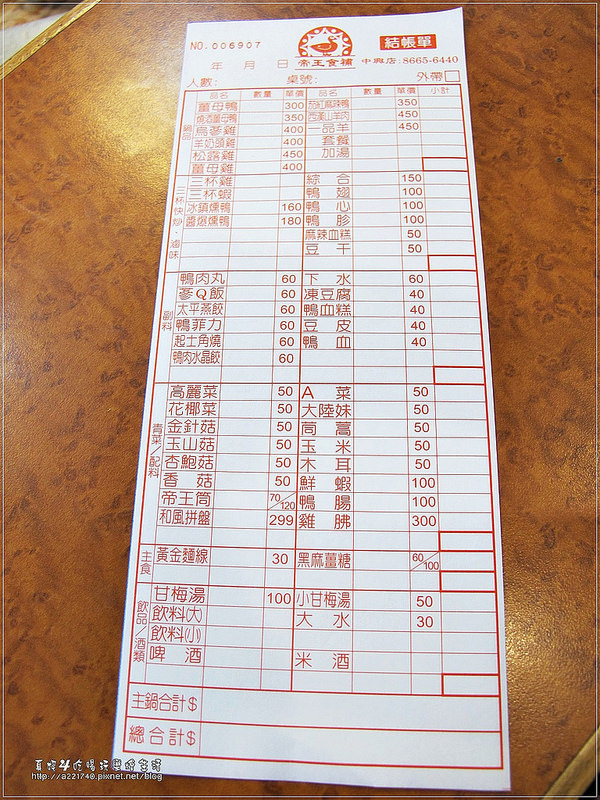 NO. 006907
結帳單
帝王食補 中興店:8665-6440
年 月 日
人數: 桌號: 外帶
品名 數量 單價 品名 數量 單價 小計
鍋品
薑母鴨 300 茄紅麻辣鴨 350
燒酒薑母鴨 350 西漢山羊肉 450
烏蔘雞 400 一品羊 450
羊奶頭雞 400 套餐
松露雞 450 加湯
薑母雞 400
三杯快炒、滷味
三杯雞 綜合 150
三杯蝦 鴨翅 100
冰鎮燻鴨 160 鴨心 100
醬爆燻鴨 180 鴨胗 100
麻辣血糕 50
豆干 50
副料
鴨肉丸 60 下水 60
蔘Q飯 60 凍豆腐 40
太平燕餃 60 鴨血糕 40
鴨菲力 60 豆皮 40
起士角燒 60 鴨血 40
鴨肉水晶餃 60
青菜/配料
高麗菜 50 A菜 50
花椰菜 50 大陸妹 50
金針菇 50 茼蒿 50
玉山菇 50 玉米 50
杏鮑菇 50 木耳 50
香菇 50 鮮蝦 100
帝王筒 70/120 鴨腸 100
和風拼盤 299 雞胇 300
主食
黃金麵線 30 黑麻薑糖 60/100
飲品/酒類
甘梅湯 100 小甘梅湯 50
飲料(大) 大水 30
飲料(小)
啤酒 米酒
主鍋合計$
總合計$
http://a221740.pixnet.net/blog